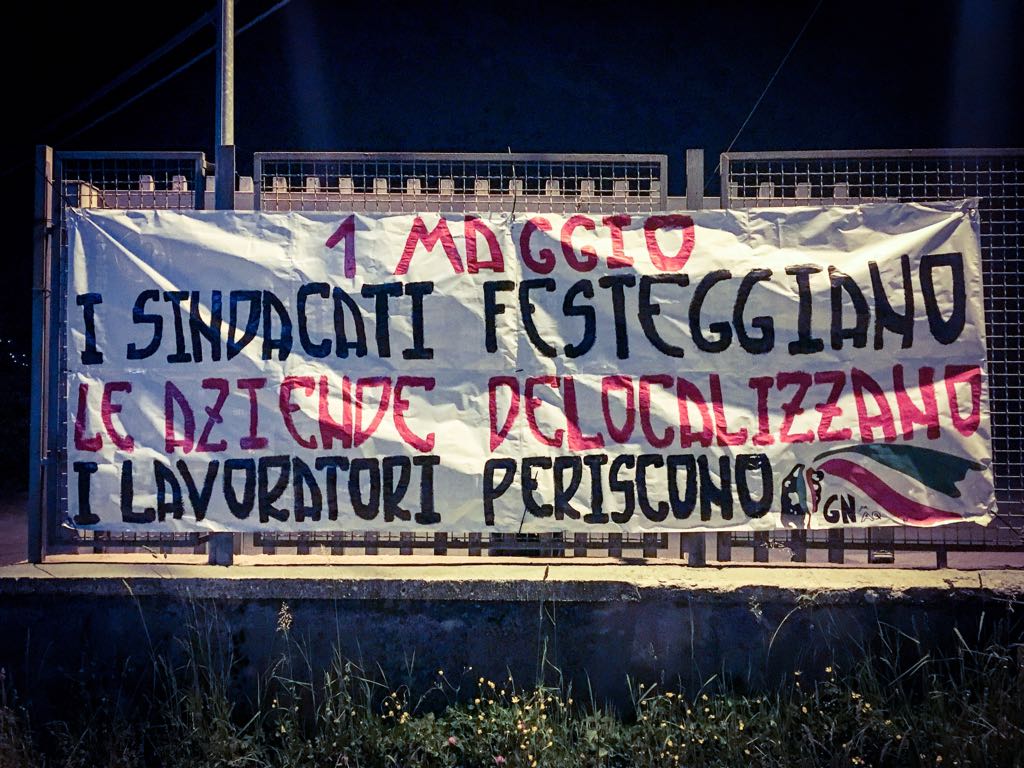 1 MAGGIO
I SINDACATI FESTEGGIANO
LE AZIENDE DELOCALIZZANO
I LAVORATORI PERISCONO
GN